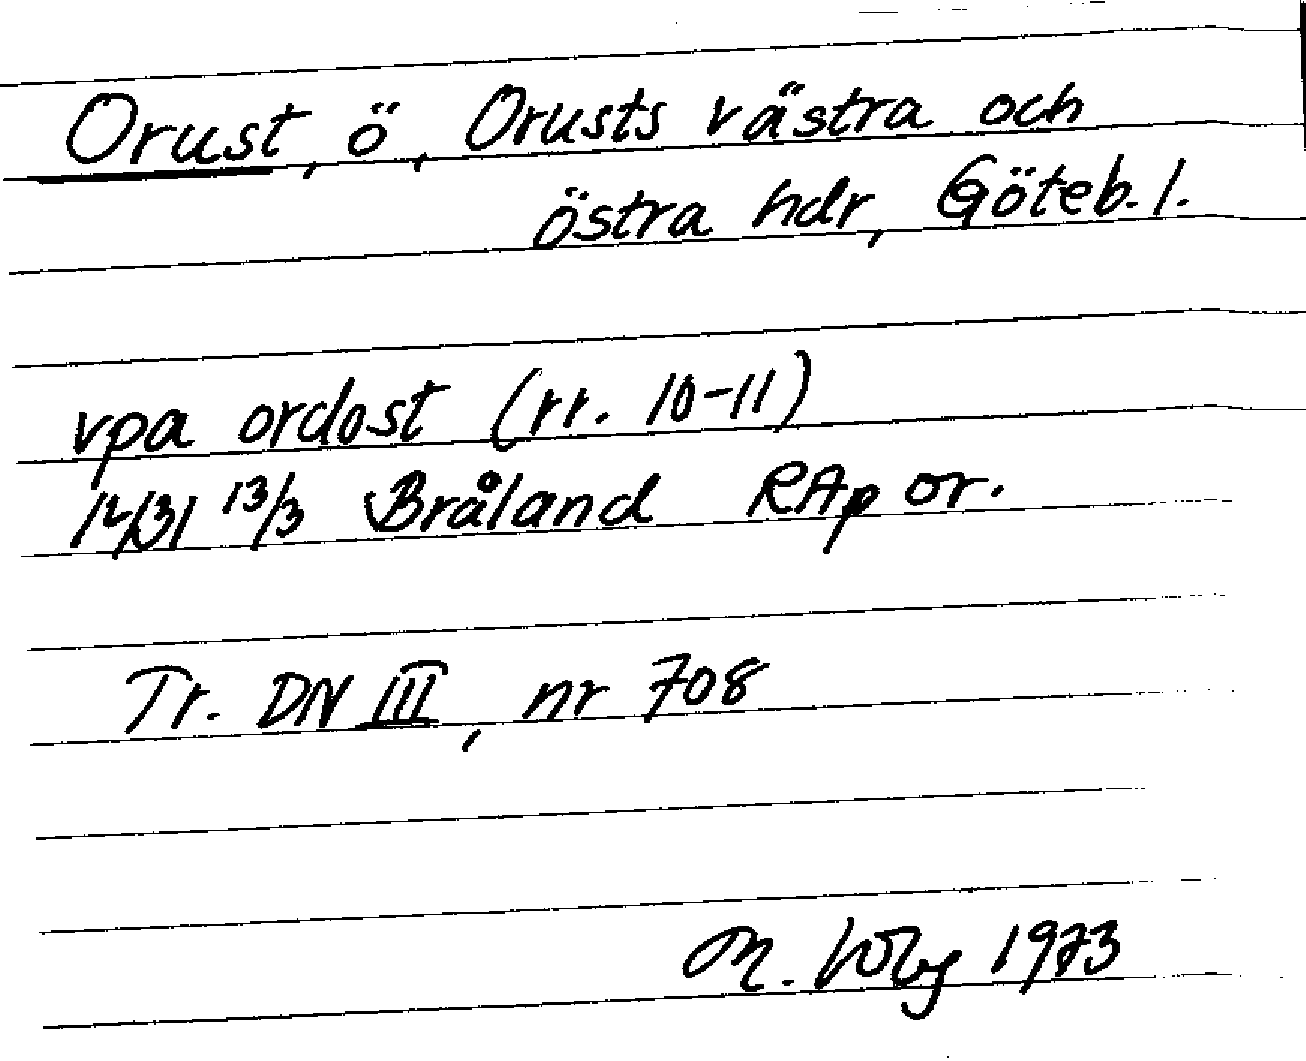 Orust, ö, Orusts västra och
östra hdr, Göteb. l.
vpa ordost (rr. 10-11)
1431 13/3 Bråland RAp or.
Tr. DN III, nr 708
M. Wbg 1973